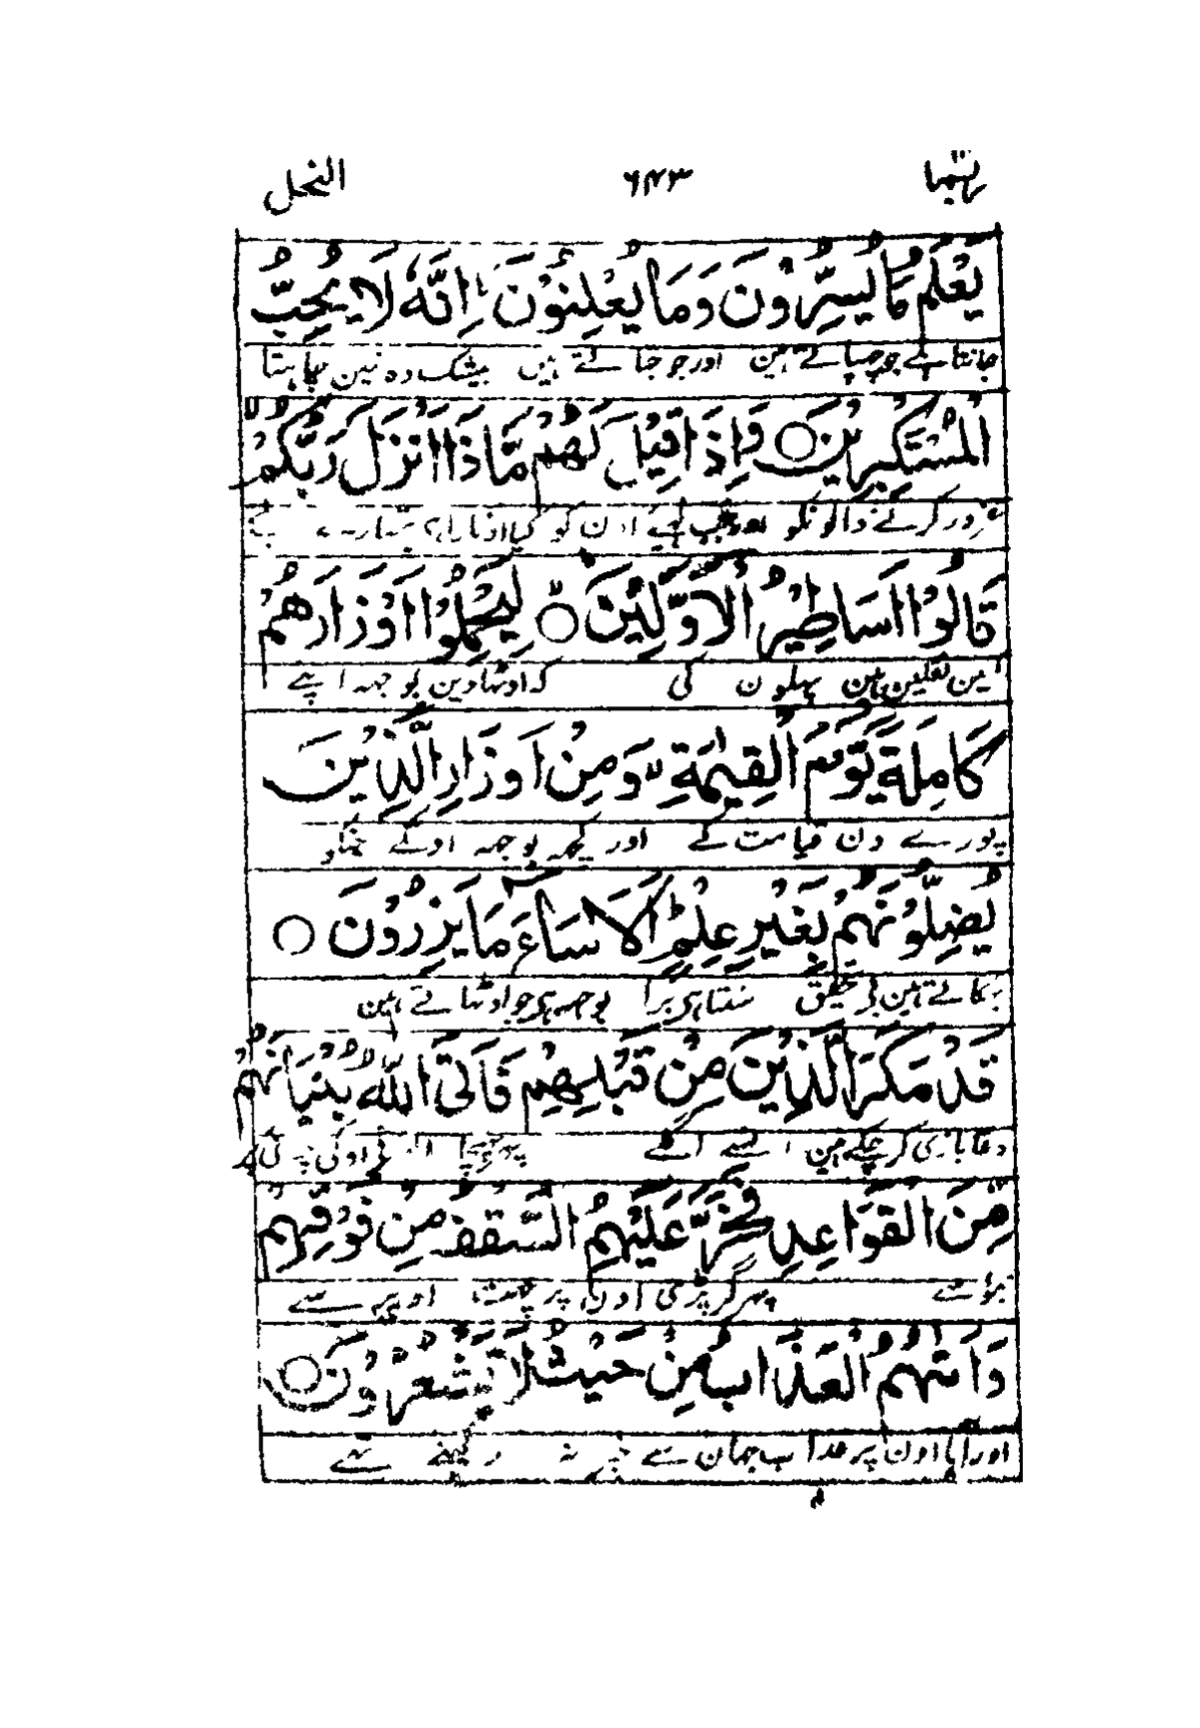 ربما ۶۴۳ النحل
يَعْلَمُ مَا يُسِرُّوْنَ وَمَا يُعْلِنُوْنَ ؕ اِنَّهٗ لَا يُحِبُّ
جانتا ہے جو چھپاتے ہین اور جو جتاتے ہیں بیشک وہ نہین چاہتا
الْمُسْتَكْبِرِيْنَ ○ وَاِذَا قِيْلَ لَهُمْ مَّاذَا اَنْزَلَ رَبُّكُمْ ۙ
غرور کرنے والونکو اور جب کہیے اون کو کیا اوتارا ہے تمہارے
قَالُوْا اَسَاطِيْرُ الْاَوَّلِيْنَ ○ لِيَحْمِلُوْا اَوْزَارَهُمْ
نقلین ہین پہلون کی کہ اوٹھاوین بوجھ اپنے
كَامِلَةً يَّوْمَ الْقِيٰمَةِ ۙ وَمِنْ اَوْزَارِ الَّذِيْنَ
پورے دن قیامت کے اور کچھ بوجھ اونکے جنکو
يُضِلُّوْنَهُمْ بِغَيْرِ عِلْمٍ ؕ اَلَا سَاءَ مَا يَزِرُوْنَ ○
بہکاتے ہین بے تحقیق سنتا ہی برا بوجھ ہی جو اوٹھاتے ہین
قَدْ مَكَرَ الَّذِيْنَ مِنْ قَبْلِهِمْ فَاَتَى اللّٰهُ بُنْيَانَهُمْ
دغابازی کر چکے ہین انسے اگلے پھر پہنچا اللہ اونکی
مِّنَ الْقَوَاعِدِ فَخَرَّ عَلَيْهِمُ السَّقْفُ مِنْ فَوْقِهِمْ
نیو سے پھر گر پڑی اون پر چھت اوپر سے
وَاَتٰهُمُ الْعَذَابُ مِنْ حَيْثُ لَا يَشْعُرُوْنَ ○
اور آیا اون پر عذاب جہان سے خبر نہ رکھتے تھے